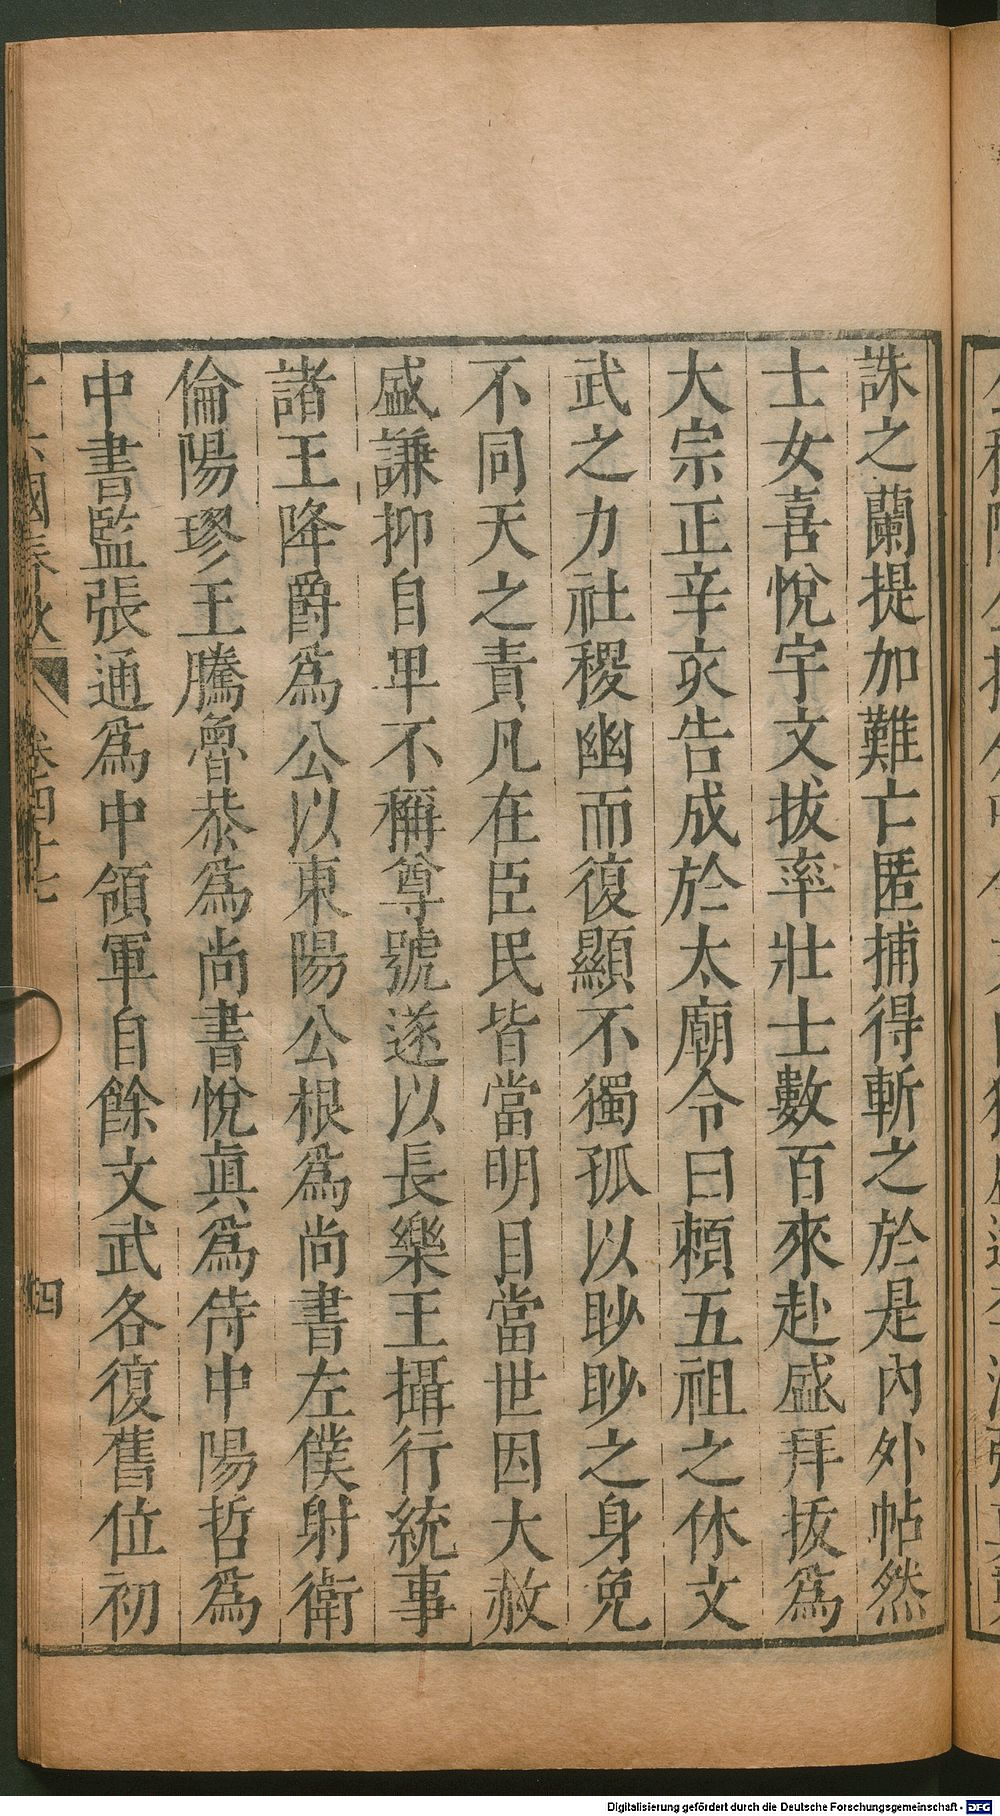 誅之蘭提加難亡匿捕得斬之於是內外帖然
士女喜悅宇文拔率壯士數百來赴盛拜拔爲
大宗正辛亥告成於太廟令曰賴五祖之休文
武之力社稷幽而復顯不獨孤以眇眇之身免
不同天之責凡在臣民皆當明目當世因大赦
盛謙抑自卑不稱尊號遂以長樂王攝行統事
諸王降爵爲公以東陽公根爲尚書左僕射衛
倫陽璆王騰魯恭爲尚書悅眞爲侍中陽哲爲
中書監張通爲中領軍自餘文武各復舊位初
國春秋
卷四十七
四
Digitalisierung gefördert durch die Deutsche Forschungsgemeinschaft - DFG